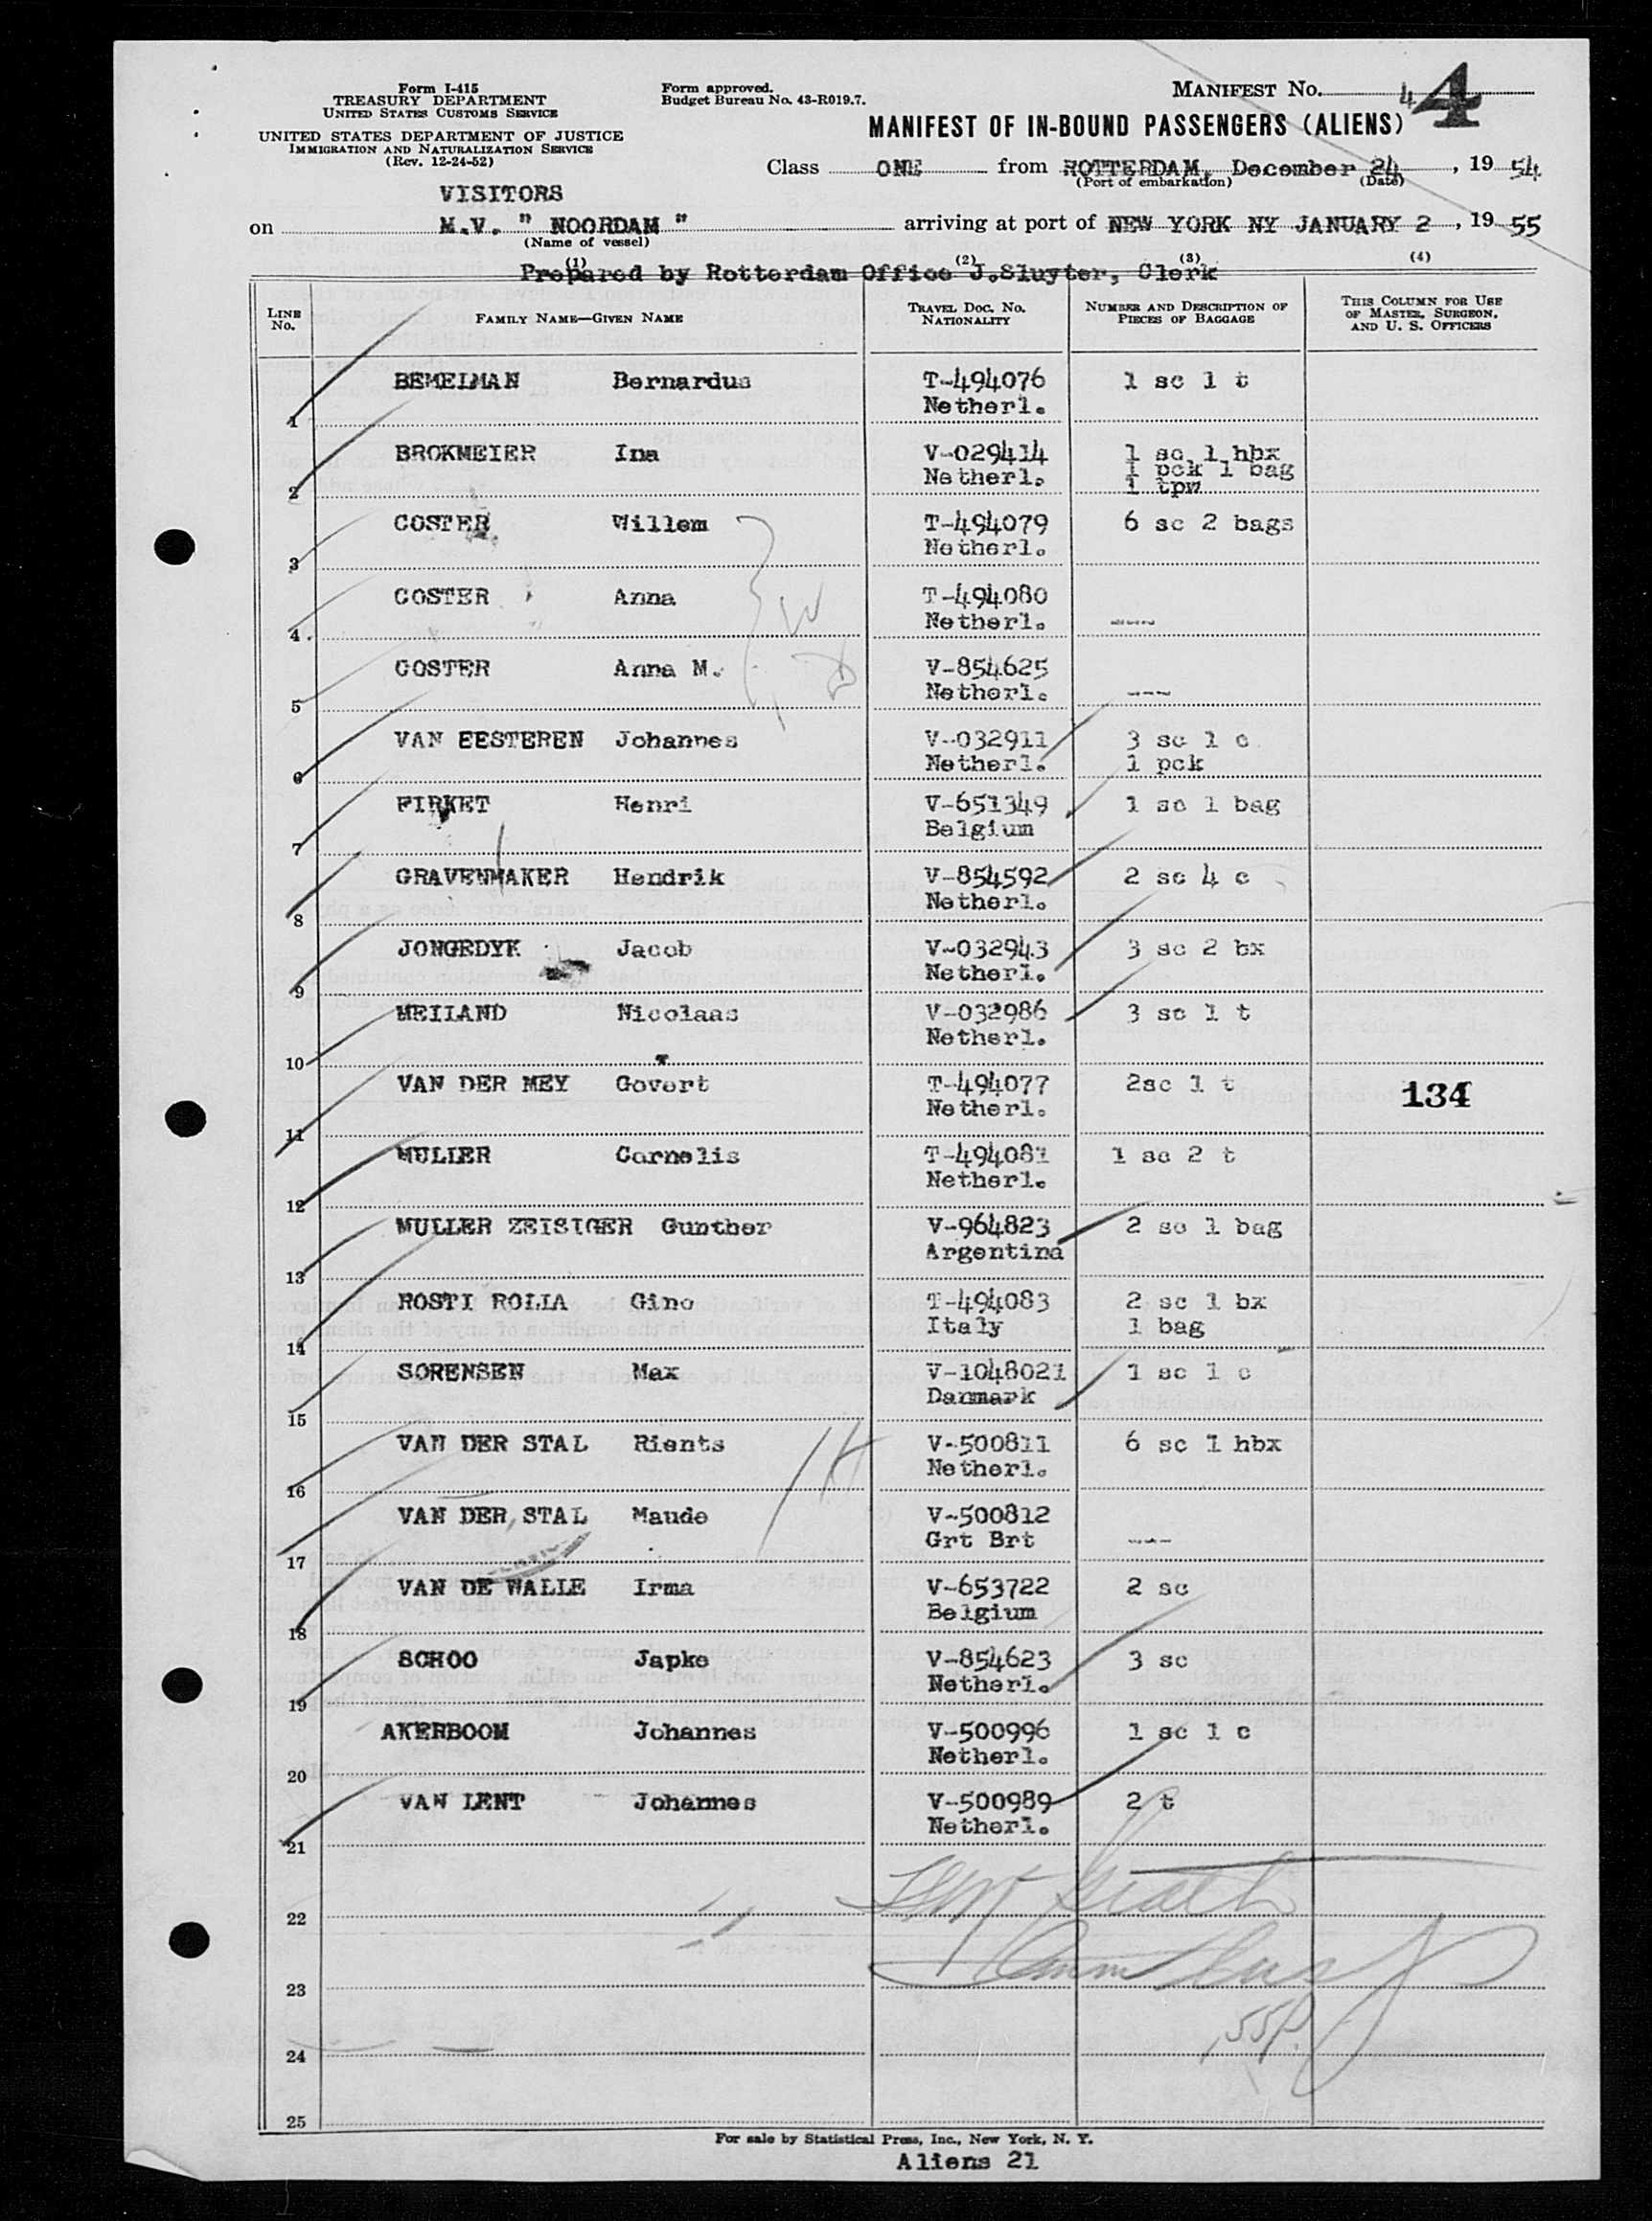 Form I-415
TREASURY DEPARTMENT
UNITED STATES CUSTOMS SERVICE
UNITED STATES DEPARTMENT OF JUSTICE
IMMIGRATION AND NATURALIZATION SERVICE
(Rev. 12-24-52)
Form approved.
Budget Bureau No. 43-R019.7.
MANIFEST No. 4 4
MANIFEST OF IN-BOUND PASSENGERS (ALIENS)
Class ONE from ROTTERDAM, December 24, 1954
(Port of embarkation) (Date)
VISITORS
on M.V. " NOORDAM " arriving at port of NEW YORK NY JANUARY 2, 1955
(Name of vessel)
(1) (2) (3) (4)
Prepared by Rotterdam Office J.Sluyter, Clerk
LINE No. FAMILY NAME—GIVEN NAME TRAVEL DOC. No. NATIONALITY NUMBER AND DESCRIPTION OF PIECES OF BAGGAGE THIS COLUMN FOR USE OF MASTER, SURGEON, AND U. S. OFFICERS
BEMELMAN Bernardus T-494076 1 sc 1 t
1 Netherl.
BROKMEIER Ina V-029414 1 sc 1 hbx
Netherl. 1 pck 1 bag
2 1 tpw
COSTER Willem T-494079 6 sc 2 bags
3 Netherl.
COSTER Anna T-494080
4 Netherl. ----
COSTER Anna M. V-854625
5 Netherl. ---
VAN EESTEREN Johannes V-032911 3 sc 1 c
6 Netherl. 1 pck
FIRKET Henri V-651349 1 sc 1 bag
7 Belgium
GRAVENMAKER Hendrik V-854592 2 sc 4 c
8 Netherl.
JONGEDYK Jacob V-032943 3 sc 2 bx
9 Netherl.
MEILAND Nicolaas V-032986 3 sc 1 t
10 Netherl.
VAN DER MEY Govert T-494077 2sc 1 t 134
11 Netherl.
MULLER Cornelis T-494081 1 sc 2 t
12 Netherl.
MULLER ZEISIGER Gunther V-964823 2 sc 1 bag
13 Argentina
ROSTI ROLLA Gino T-494083 2 sc 1 bx
14 Italy 1 bag
SORENSEN Max V-1048021 1 sc 1 c
15 Danmark
VAN DER STAL Rients V-500811 6 sc 1 hbx
16 Netherl.
VAN DER STAL Maude V-500812
17 Grt Brt ---
VAN DE WALLE Irma V-653722 2 sc
18 Belgium
SCHOO Japke V-854623 3 sc
19 Netherl.
AKERBOOM Johannes V-500996 1 sc 1 c
20 Netherl.
VAN LENT Johannes V-500989 2 t
21 Netherl.
22
23
24
25
For sale by Statistical Press, Inc., New York, N. Y.
Aliens 21